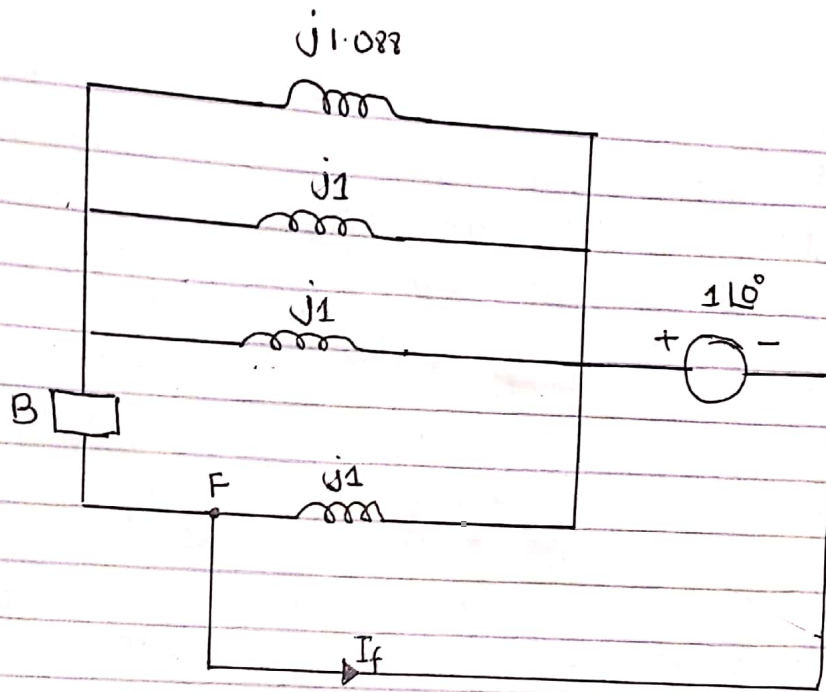 j1.088
j1
j1
1∠0°
+ -
B
F
j1
If